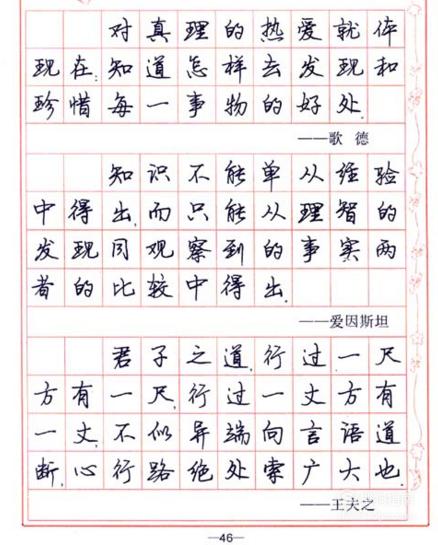 对真理的热爱就体
现在:知道怎样去发现和
珍惜每一事物的好处.
——歌 德
知识不能单从经验
中得出,而只能从理智的
发现同观察到的事实两
者的比较中得出.
——爱因斯坦
君子之道,行过一尺
方有一尺,行过一丈方有
一丈,不似异端向言语道
断,心行路绝处索广大也.
——王夫之
—46—